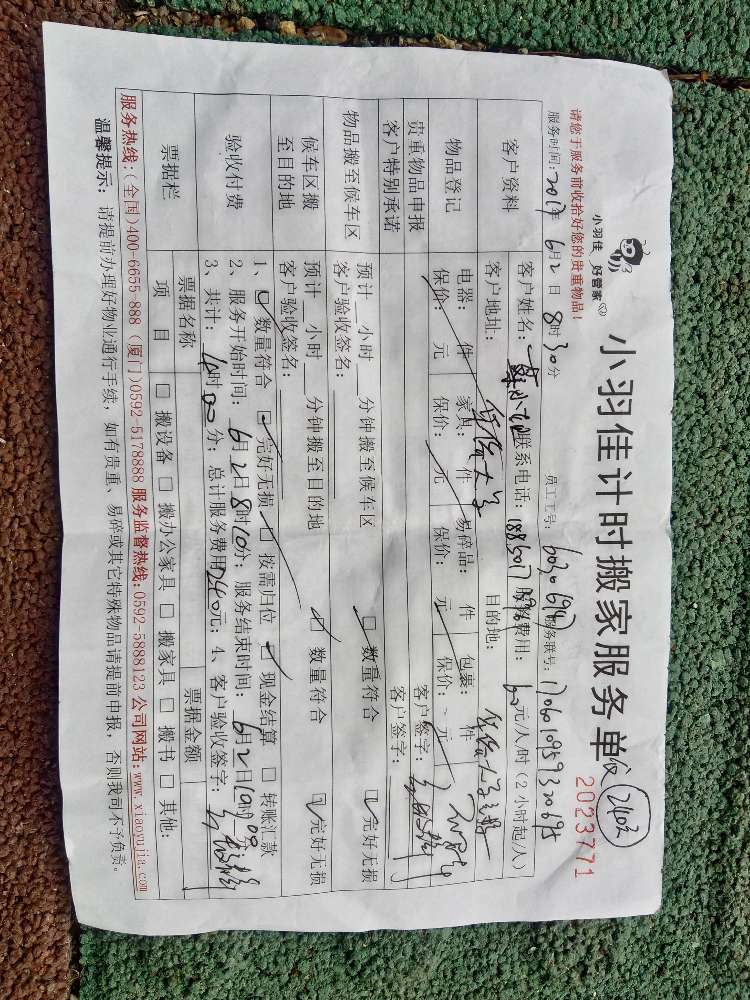 小羽佳
好管家
小羽佳计时搬家服务单
2023771
请您于服务前收拾好您的贵重物品!
服务时间: 2017年6月2日8时30分 员工工号: 服务联号:
客户资料 客户姓名: 联系电话: 服务费用: 60元/人/时(2小时起/人)
客户地址: 目的地:
物品登记 电器: 件 家具: 件 易碎品: 件 包裹: 件
保价: 元 保价: 元 保价: 元 保价: 元
贵重物品申报 客户签字:
客户特别承诺 客户签字:
物品搬至候车区 预计__小时__分钟搬至候车区 □数量符合 □完好无损
客户验收签名:
候车区搬至目的地 预计__小时__分钟搬至目的地 □数量符合 □完好无损
客户验收签名:
验收付费 1、□数量符合 □完好无损 □按需归位 □现金结算 □转账汇款
2、服务开始时间: 6月2日8时10分; 服务结束时间: 6月2日
3、共计: 4时00分; 总计服务费用240元; 4、客户验收签字:
票据栏 票据名称 票据金额
项目 □搬设备 □搬办公家具 □搬家具 □搬书 □其他:
服务热线:(全国)400-6655-888 (厦门)0592-5178888 服务监督热线:0592-5888123 公司网站:www.xiaoyujia.com
温馨提示: 请提前办理好物业通行手续, 如有贵重、易碎或其它特殊物品请提前申报, 否则我司不予负责。